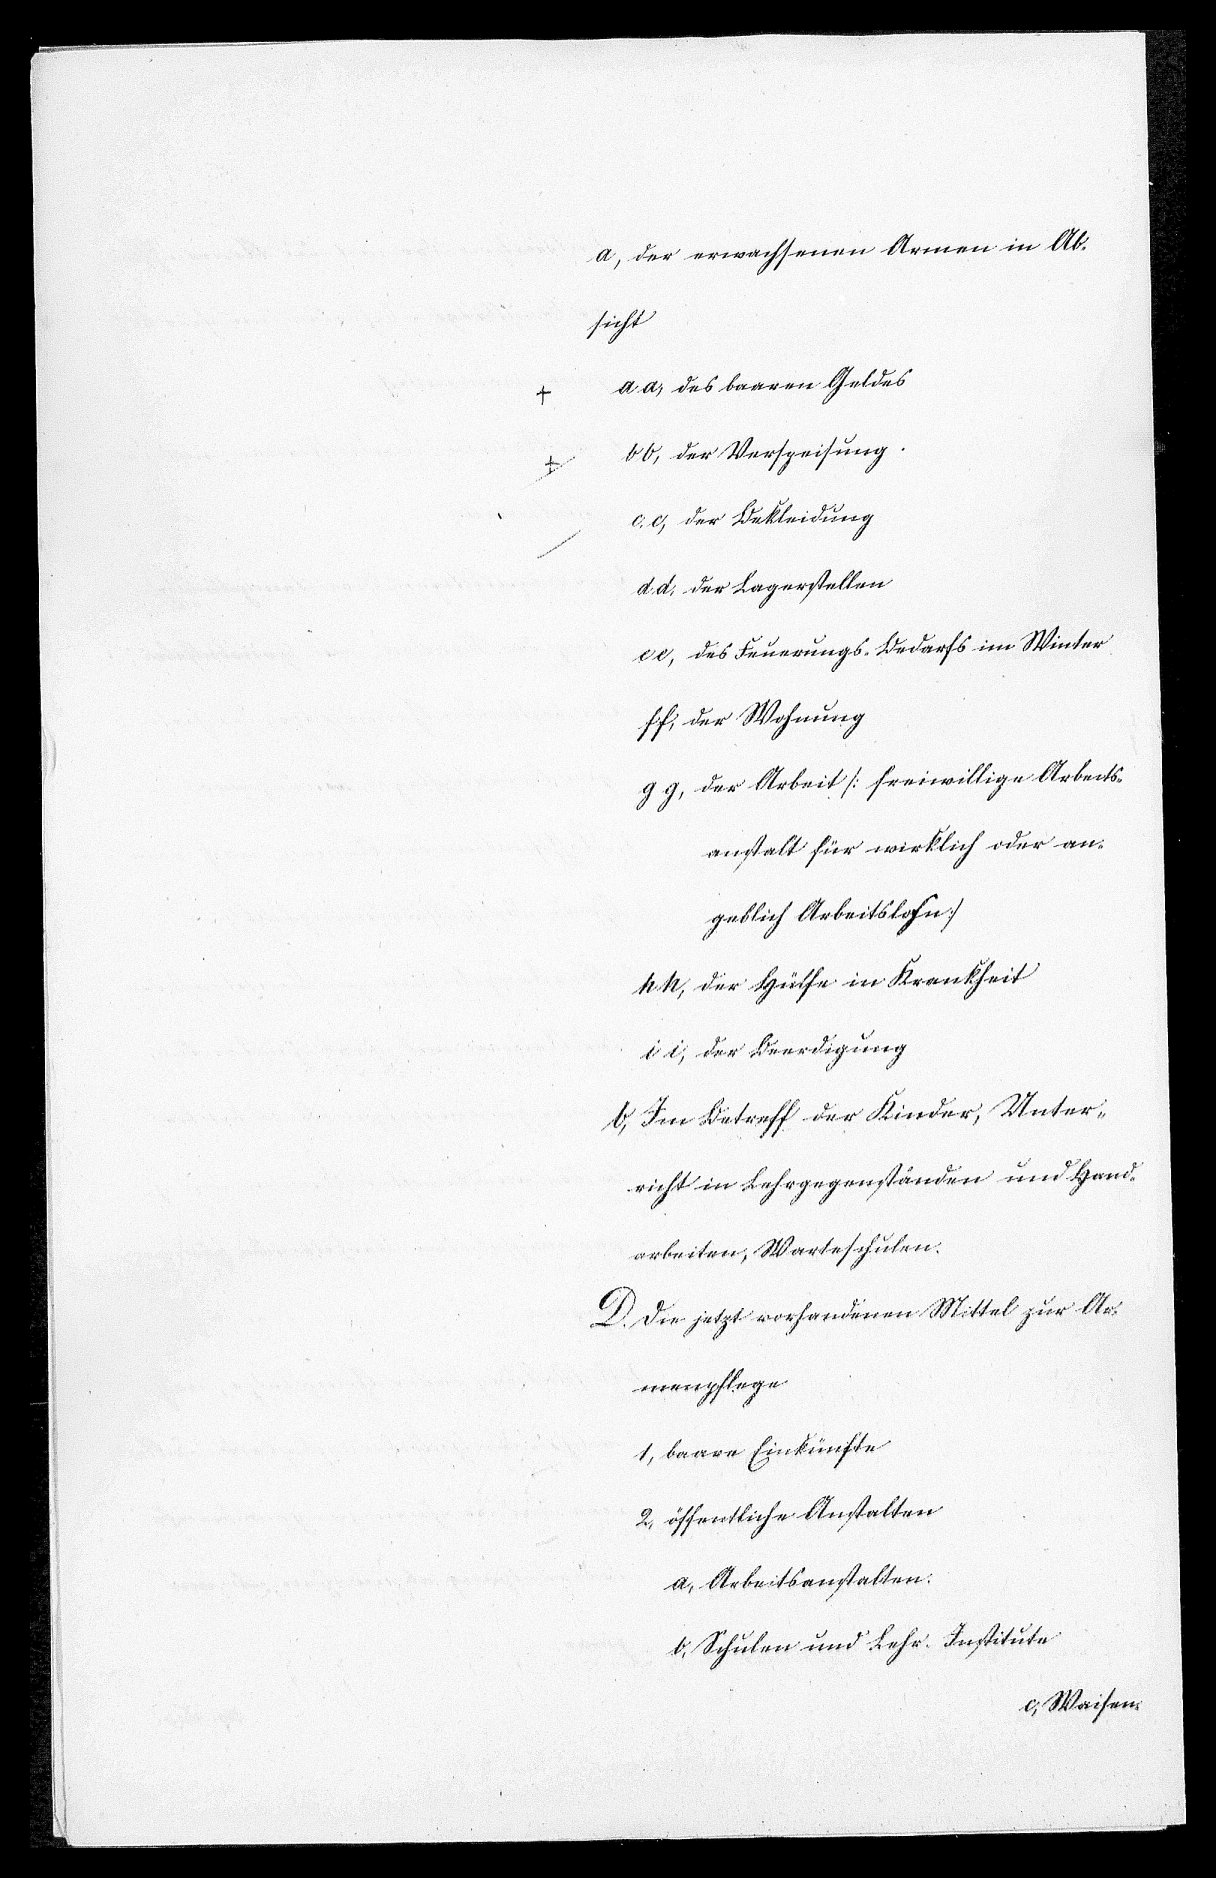 a, der erwachsenen Armen in Ab-
sicht
+ aa, des baaren Geldes
+ bb, der Verspeisung.
c.c, der Bekleidung
d.d, der Lagerstellen
ee, des Feuerungs-Bedarfs im Winter
ff, der Wohnung
gg, der Arbeit /: freiwillige Arbeits-
anstalt für wirklich oder an-
geblich Arbeitslose :/
hh, der Hülfe in Krankheit
ii, der Beerdigung
b, Im Betreff der Kinder, Unter-
richt in Lehrgegenständen und Hand-
arbeiten, Warteschulen.
D. Die jetzt vorhandenen Mittel zur Ar-
menpflege
1, baare Einkünfte
2, öffentliche Anstalten
a, Arbeitsanstalten.
b, Schulen und Lehr-Institute
c, Waisen-